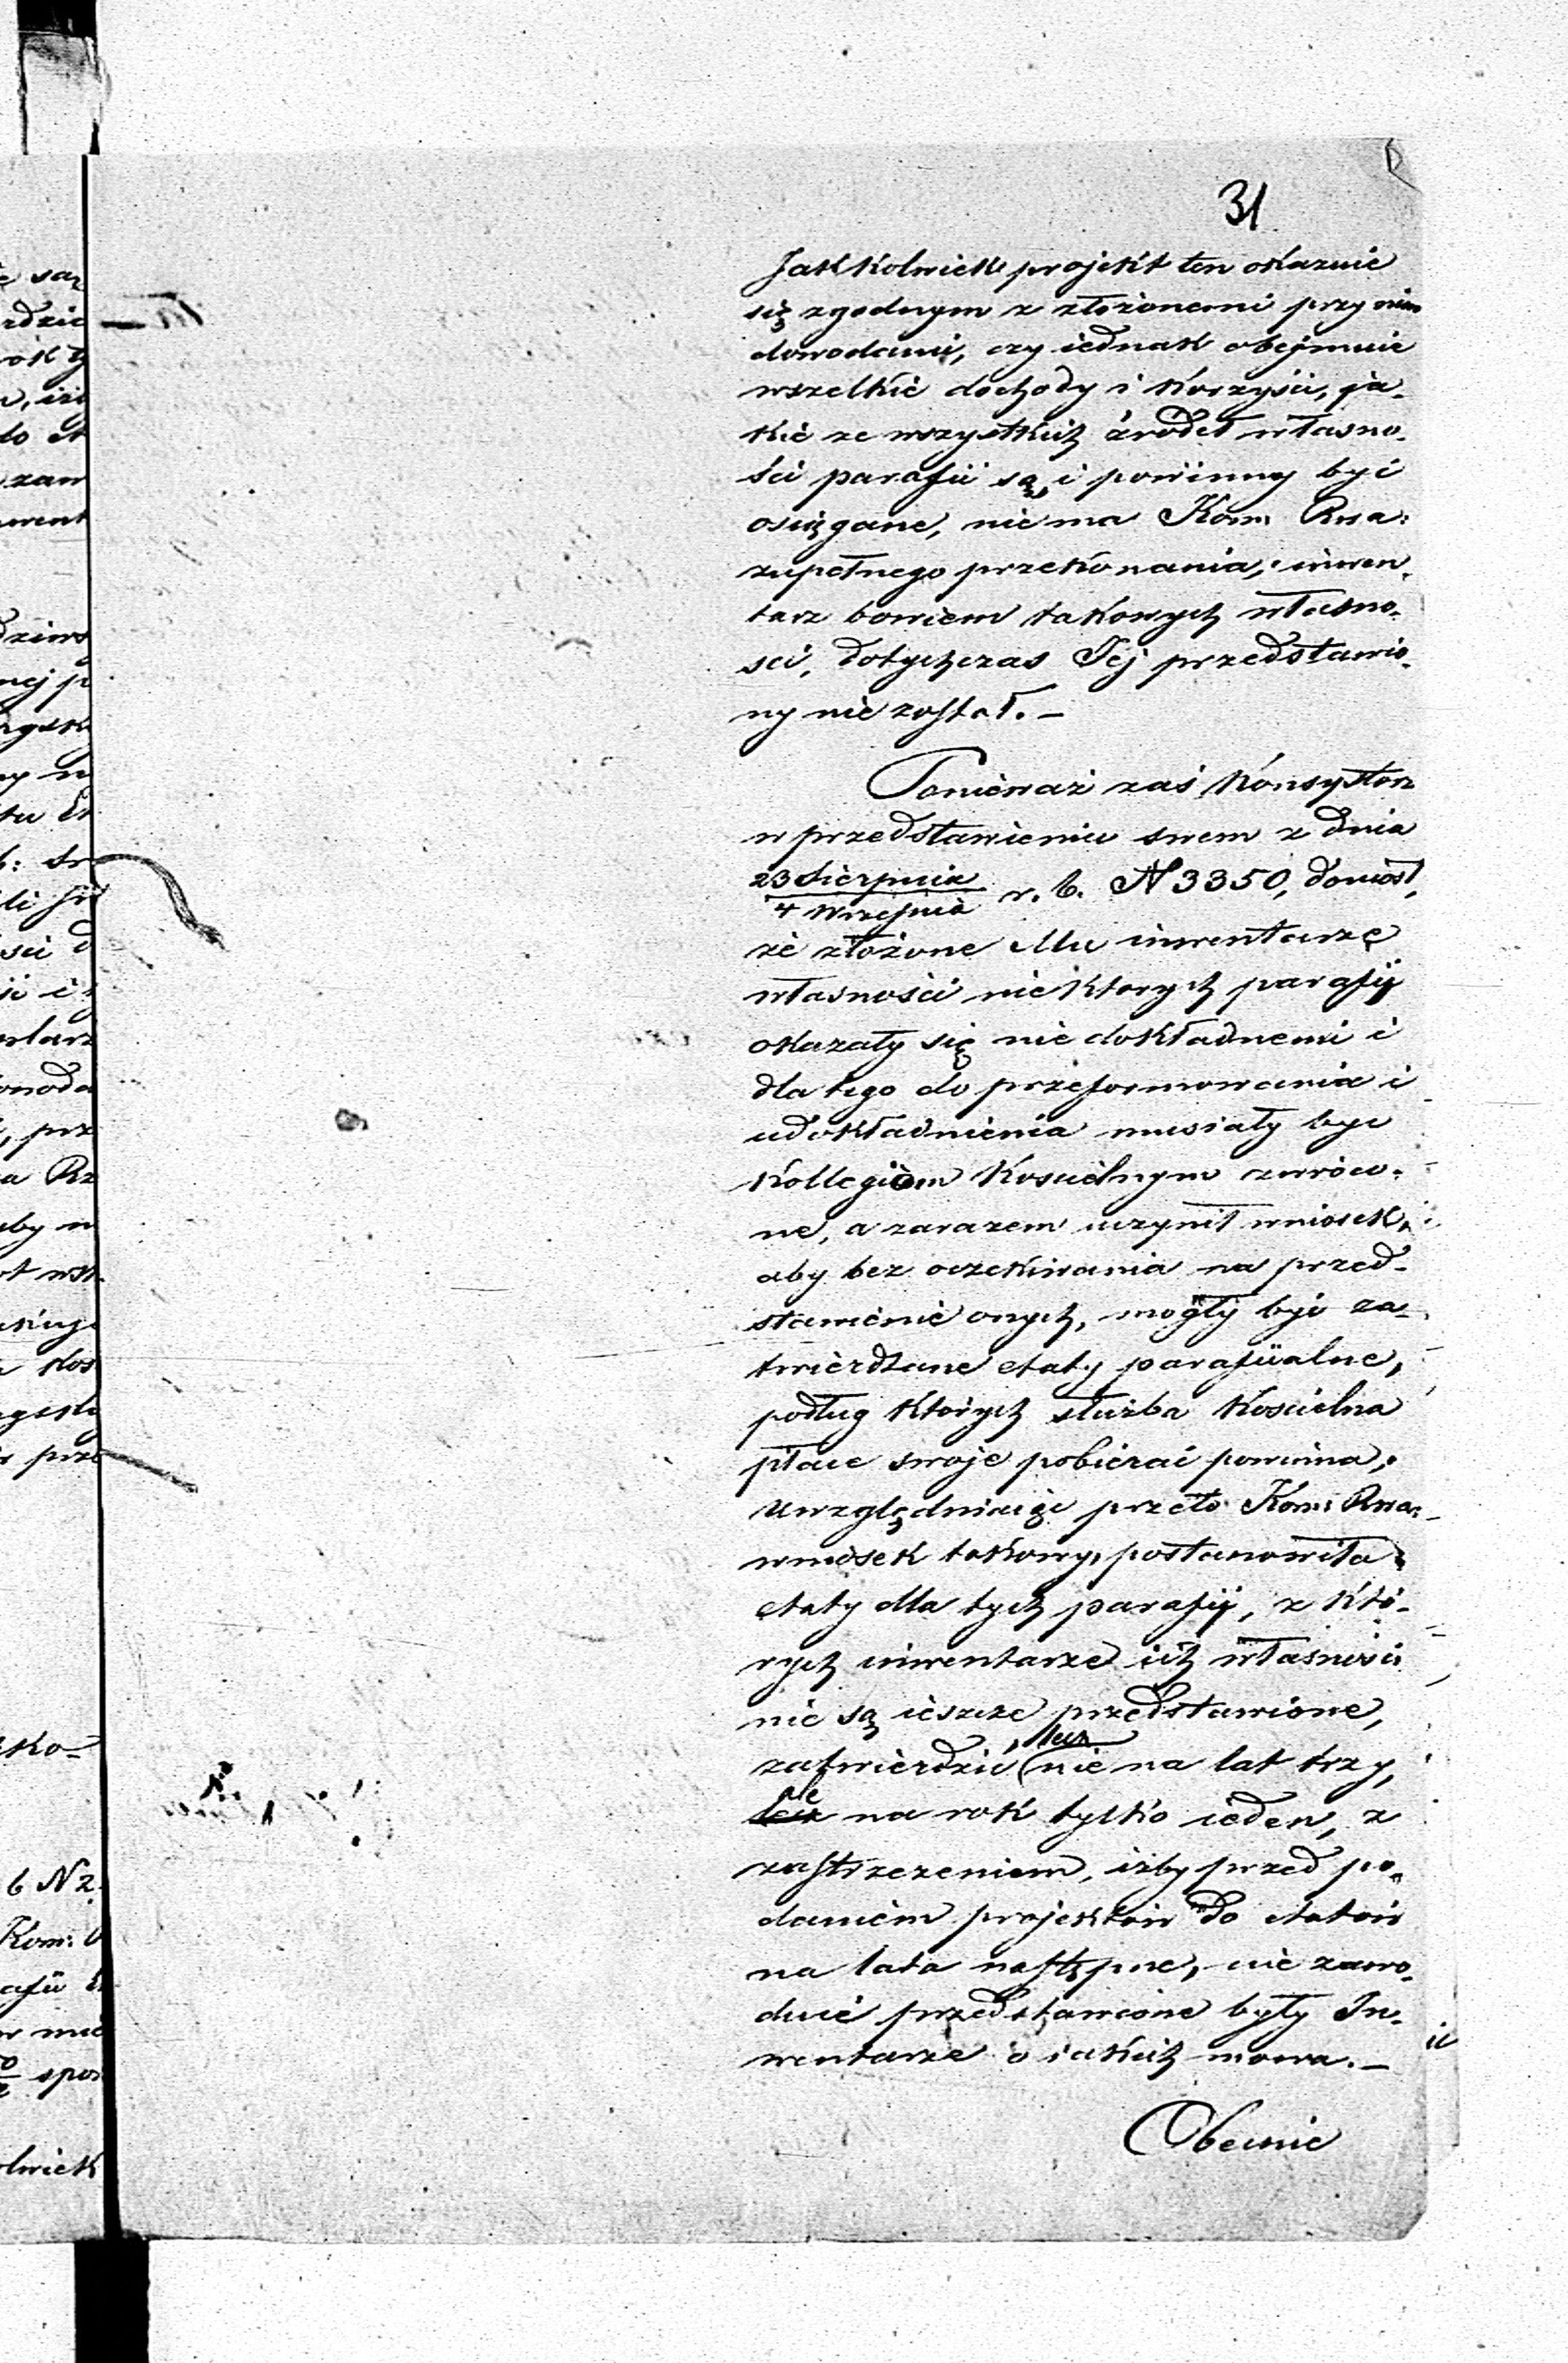 31
Jakkolwiek projekt ten okazuie
się zgodnym z złożonemi przy nim
dowodami, czy iednak obejmuie
wszelkie dochody i korzyści, ja-
kie ze wszystkich źródeł własno-
ści parafii są, i powinny być
osiągane, nie ma Kom: Rwa:
zupełnego przekonania, inwen-
tarz bowiem takowych własno-
sci, dotychczas Jej przedstawio-
ny nie został. —
Ponieważ zaś Konsystorz
w przedstawieniu swem z dnia
23 Sierpnia / 4 Września r. b. N 3350, doniosł,
że złożone Mu inwentarze
własności niektorych parafij
okazały się nie dokładnemi i
dla tego do przeformowania i
udokładnienia musiały byc
Kollegiom Kościelnym zwróco-
ne, a zarazem uczynił wniosek,
aby bez oczekiwania na przed-
stawienie onych, mogły być za-
twierdzane etaty parafiialne,
podług których służba Kościelna
płace swoje pobierać powinna,
uwzględniaiąc przeto Kom: Rwa:
wniosek takowy, postanowiła
etaty dla tych parafij, z któ-
rych inwentarze ich własności
nie są ieszcze przedstawione,
lecz
zatwierdzić, (nie na lat trzy,
ale
lecz na rok tylko ieden, z
zastrzeżeniem, iżby przed po-
daniem projektów do etatów
na lata następne, nie zawo-
dnie przedstawione były In-
wentarze o iakich mowa. —
Obecnie